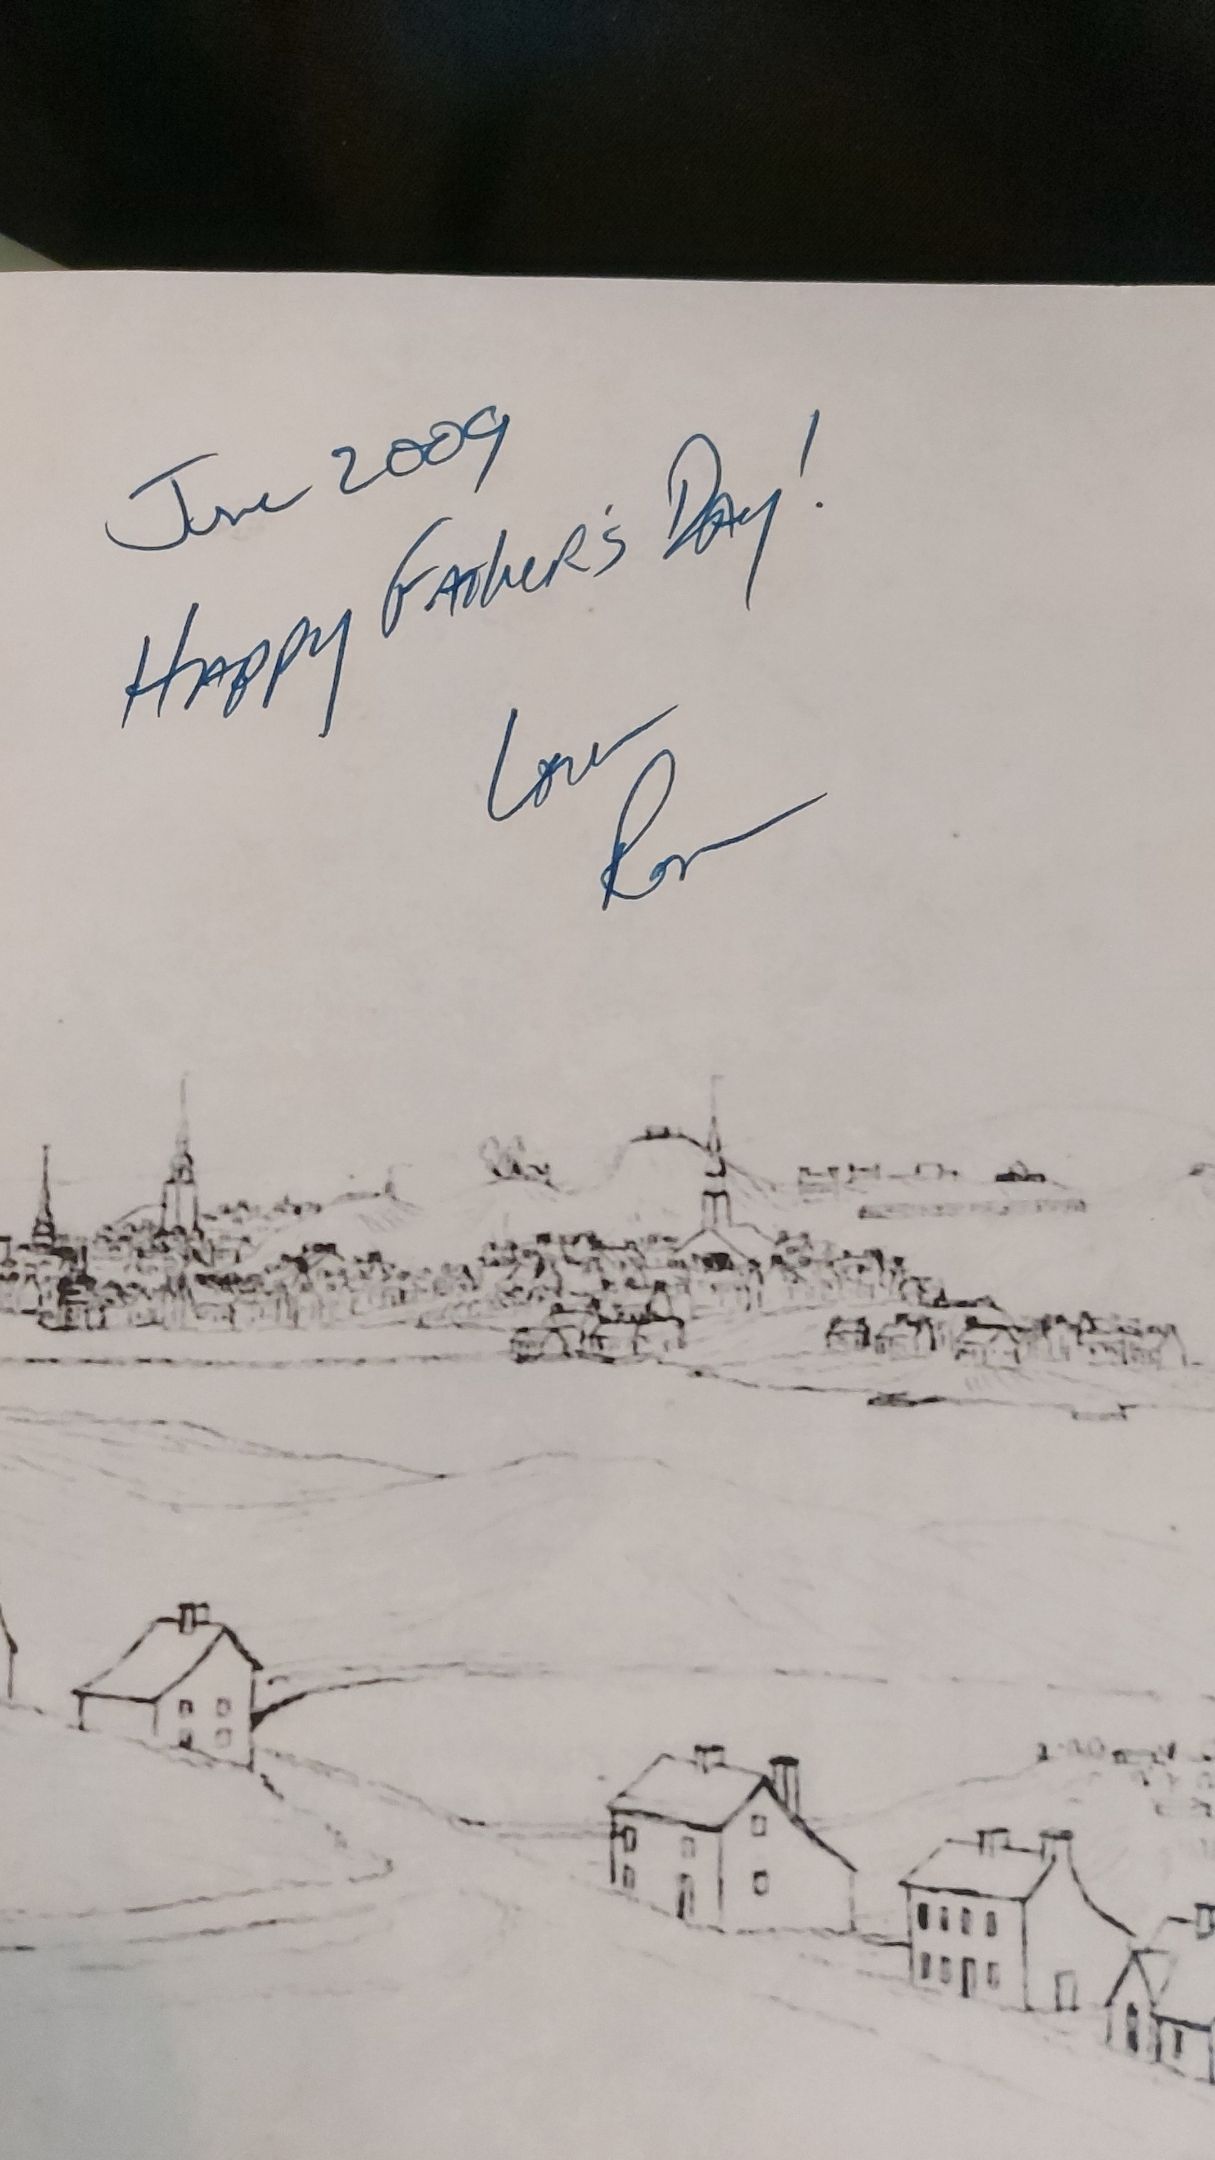 June 2009
Happy Father's Day!
Love
Ron